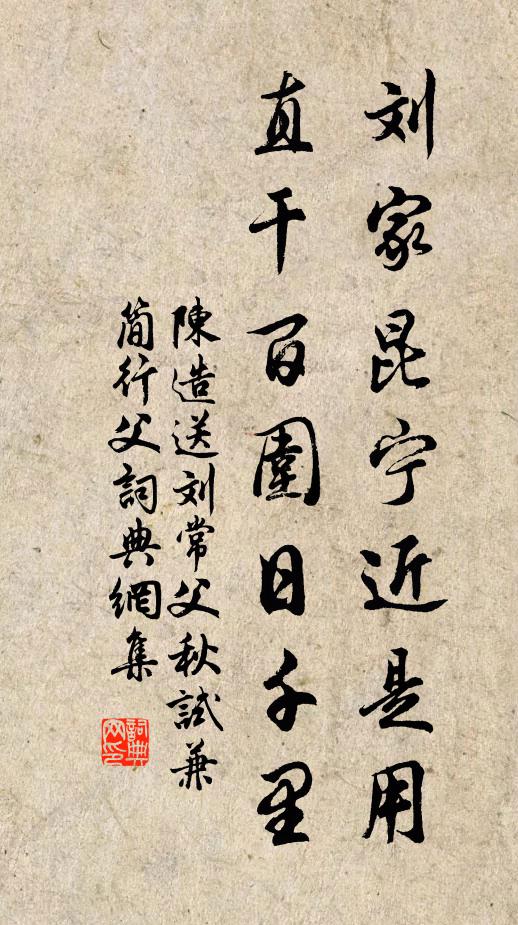 刘家昆宁近是用
直干百圍日千里
陳造送刘常父秋試兼
简行父詞典網集
詞典网印